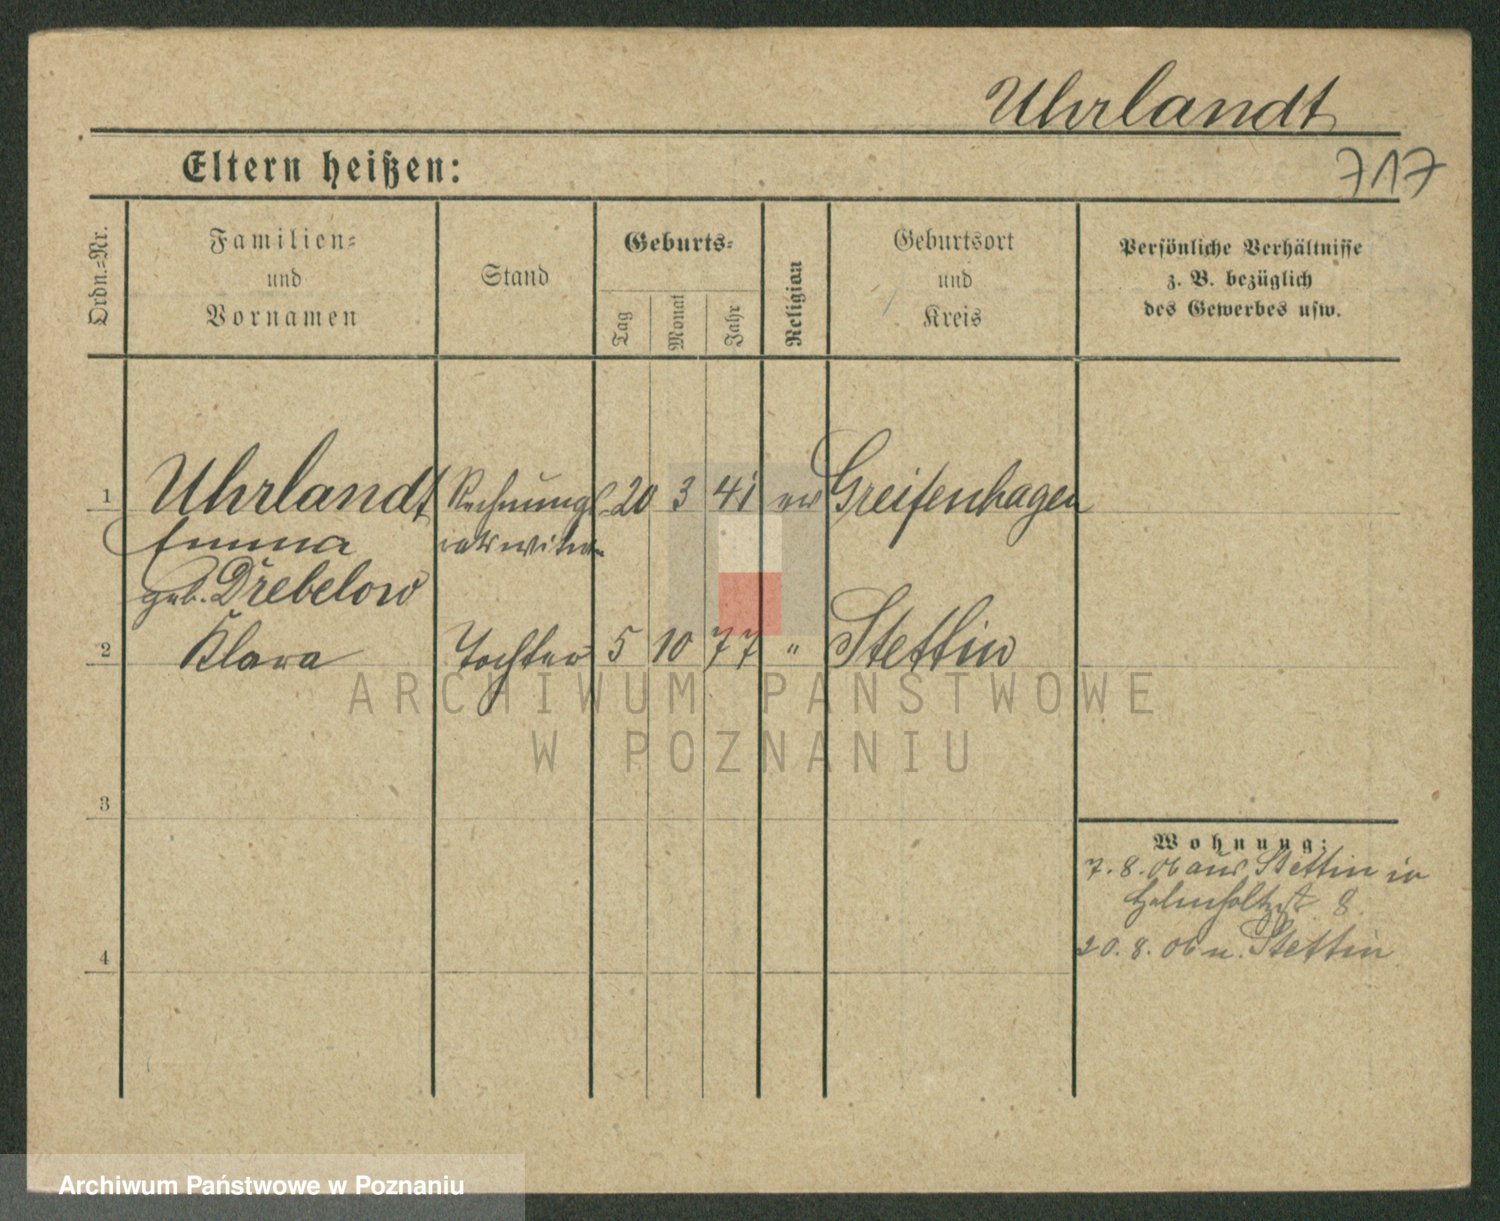 Uhrlandt
Eltern heißen:
717
Ordn.=Nr.
Familien=
und
Vornamen
Stand
Geburts=
Tag
Monat
Jahr
Religion
Geburtsort
und
Kreis
Persönliche Verhältnisse
z. B. bezüglich
des Gewerbes usw.
1 Uhrlandt Rechnungs- 20 3 41 ev Greifenhagen
Emma ratswitwe
geb. Drebelow
2 Klara Tochter 5 10 77 " Stettin
ARCHIWUM PAŃSTWOWE
W POZNANIU
3
Wohnung:
7. 8. 06 aus Stettin in
Helmholtzst 8
20. 8. 06 n. Stettin
4
Archiwum Państwowe w Poznaniu